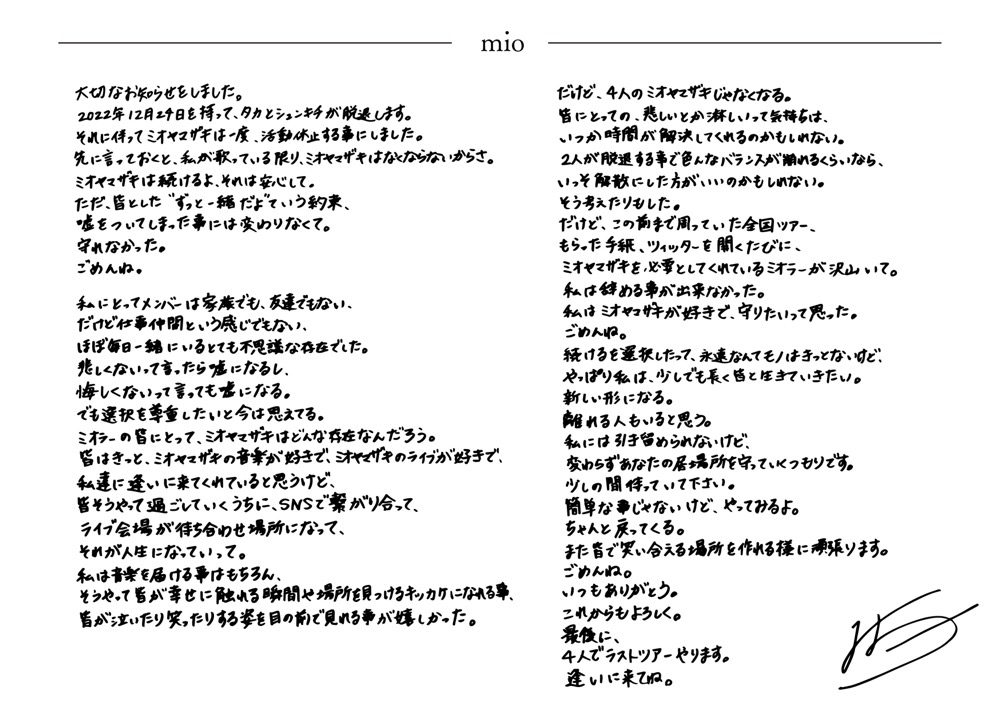 mio
大切なお知らせをしました。
2022年12月24日を持って、タカとシュンキチが脱退します。
それに伴ってミオヤマザキは一度、活動休止する事にしました。
先に言っておくと、私が歌っている限り、ミオヤマザキはなくならないからさ。
ミオヤマザキは続けるよ、それは安心して。
ただ、皆とした“ずっと一緒だよ”ていう約束、
嘘をついてしまった事には変わりなくて。
守れなかった。
ごめんね。
私にとってメンバーは家族でも、友達でもない、
だけど仕事仲間という感じでもない、
ほぼ毎日一緒にいるとても不思議な存在でした。
悲しくないって言ったら嘘になるし、
悔しくないって言っても嘘になる。
でも選択を尊重したいと今は思えてる。
ミオラーの皆にとって、ミオヤマザキはどんな存在なんだろう。
皆はきっと、ミオヤマザキの音楽が好きで、ミオヤマザキのライブが好きで、
私達に逢いに来てくれていると思うけど、
皆そうやって過ごしていくうちに、SNSで繋がり合って、
ライブ会場が待ち合わせ場所になって、
それが人生になっていって。
私は音楽を届ける事はもちろん、
そうやって皆が幸せに触れる瞬間や場所を見つけるキッカケになれる事、
皆が泣いたり笑ったりする姿を目の前で見れる事が嬉しかった。
だけど、4人のミオヤマザキじゃなくなる。
皆にとっての、悲しいとか淋しいって気持ちは、
いつか時間が解決してくれるのかもしれない。
2人が脱退する事で色んなバランスが崩れるくらいなら、
いっそ解散にした方がいいのかもしれない。
そう考えたりもした。
だけど、この前まで周っていた全国ツアー、
もらった手紙、ツイッターを開くたびに、
ミオヤマザキを必要としてくれているミオラーが沢山いて。
私は辞める事が出来なかった。
私はミオヤマザキが好きで、守りたいって思った。
ごめんね。
続けるを選択したって、永遠なんてモノはきっとないけど、
やっぱり私は、少しでも長く皆と生きていきたい。
新しい形になる。
離れる人もいると思う。
私には引き留められないけど、
変わらずあなたの居場所を守っていくつもりです。
少しの間待っていて下さい。
簡単な事じゃないけど、やってみるよ。
ちゃんと戻ってくる。
また皆で笑い合える場所を作れる様に頑張ります。
ごめんね。
いつもありがとう。
これからもよろしく。
最後に、
4人でラストツアーやります。
逢いに来てね。